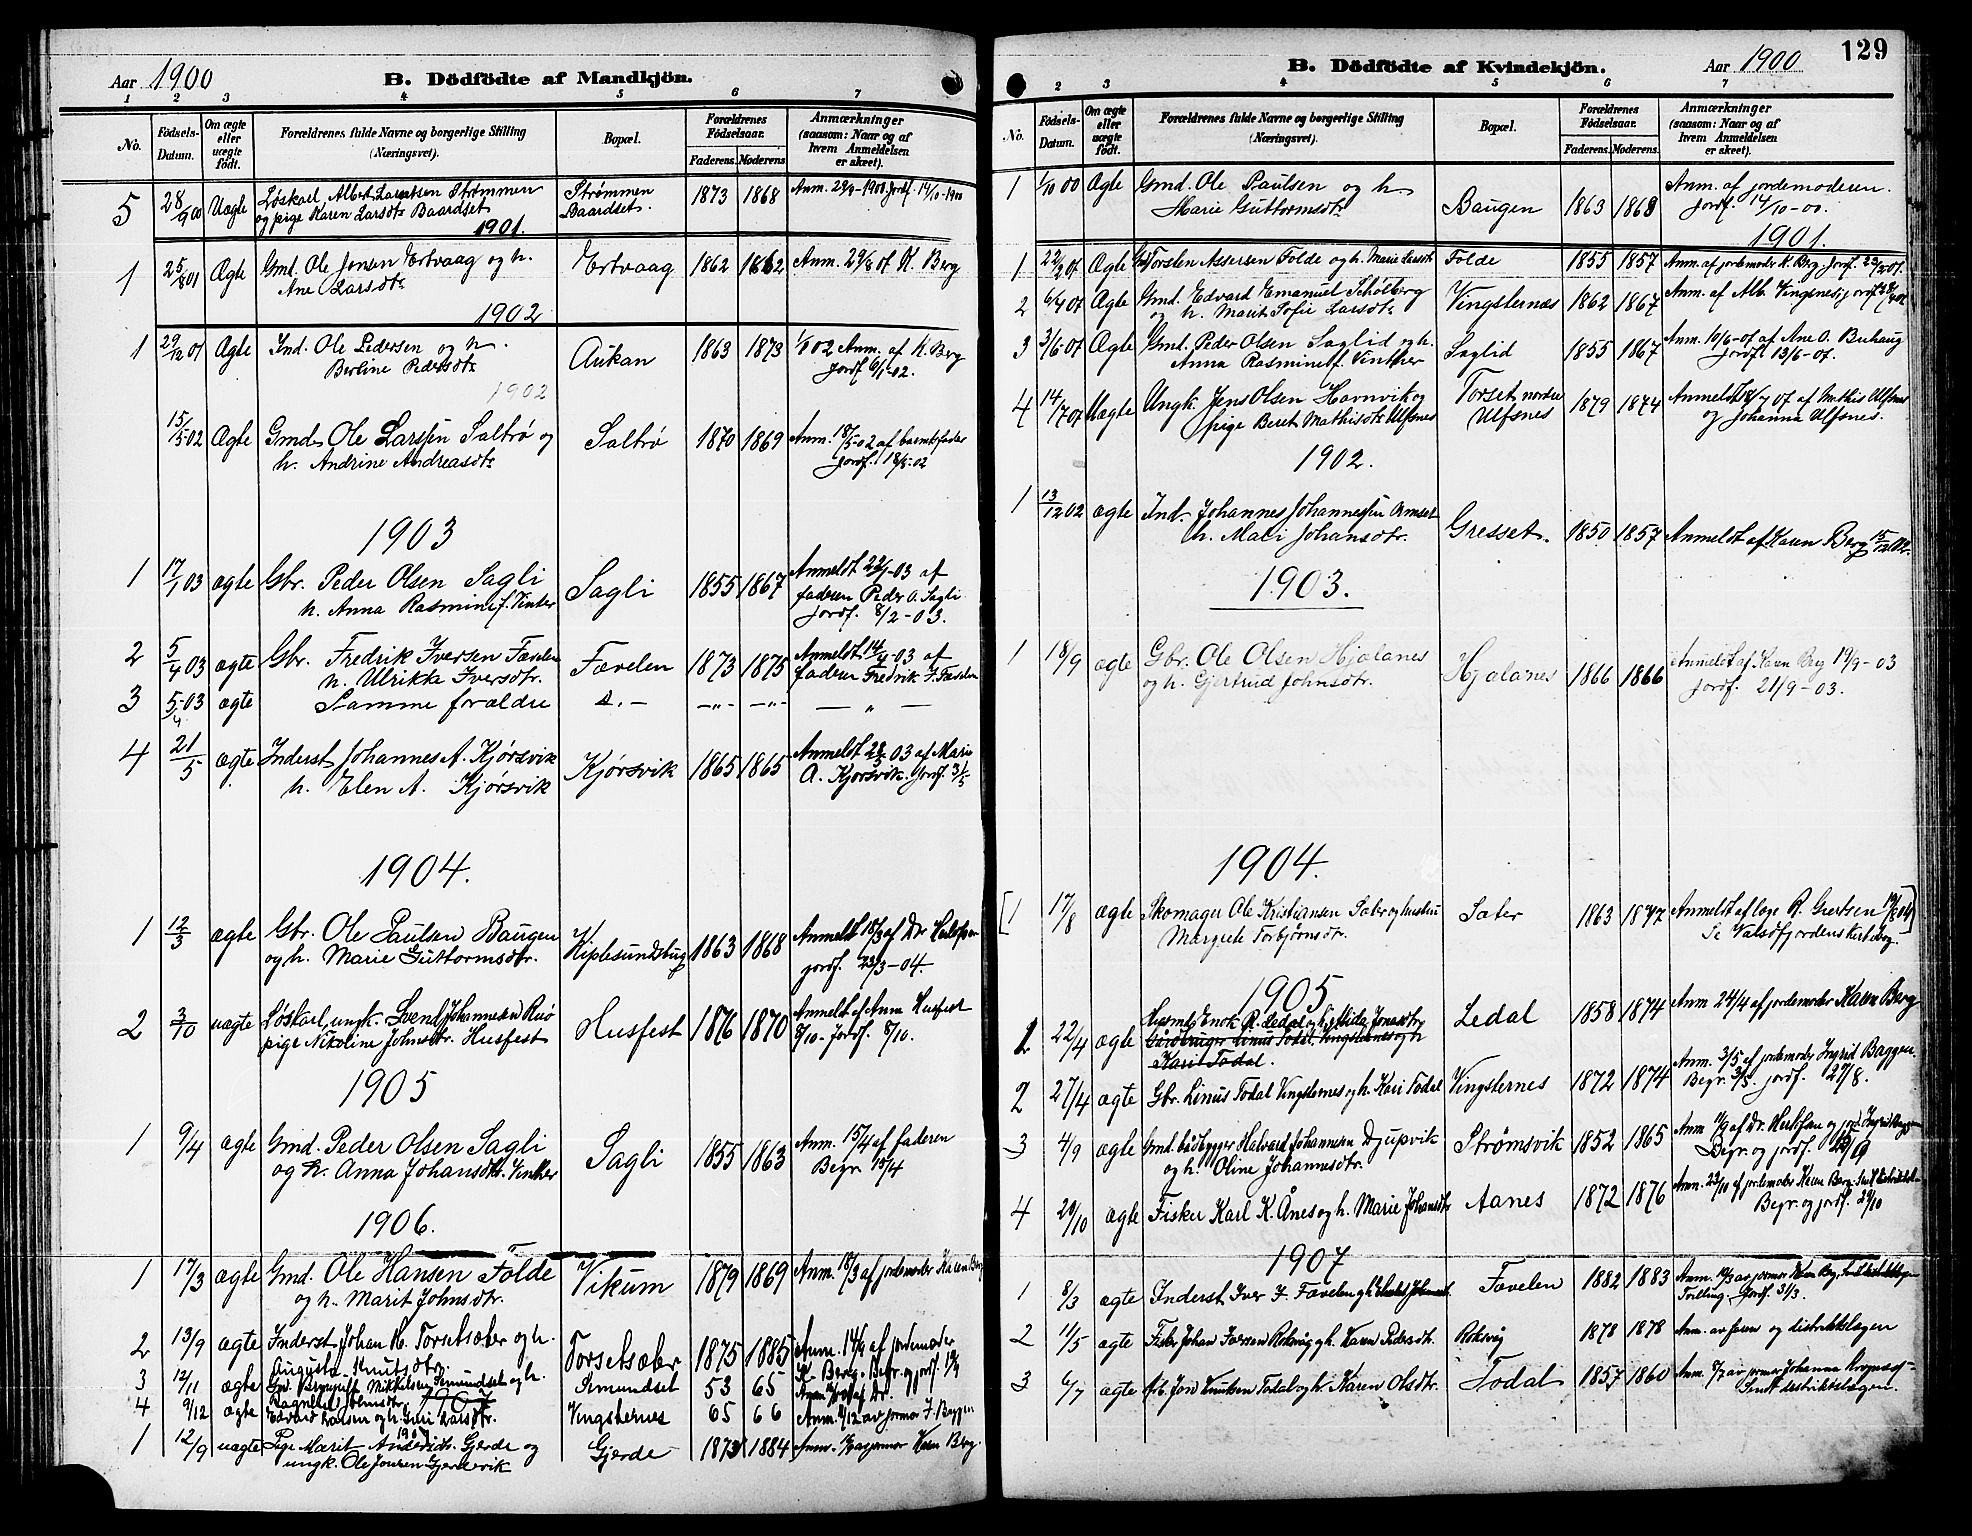 Aar 1900
B. Dödfödte af Mandkjön.
1 2 3 4 5 6 7
No. Födsels-Datum. Om ægte eller uægte födt. Forældrenes fulde Navne og borgerlige Stilling (Næringsvei). Bopæl. Forældrenes Födselsaar. Faderens. Moderens. Anmærkninger (saasom: Naar og af hvem Anmeldelsen er skeet).
5 28/9 00 Uægte Løskarl Albert Larsen Strømmen Strømmen 1873 1868 Anm. 29/9-1900 Jordf. 14/10-1900
og pige Karen Larsdt. Baardset Baardset.
1901.
1 25/8 01 Ægte Gmd. Ole Jonsen Ertvaag og h. Ertvaag 1862 1862 Anm. 29/8 01 K. Berg
Ane Larsdt.
1902
1 29/12 01 Ægte Ind. Ole Pedersen og h. Aukan 1863 1873 1/1 02 Anm. af K. Berg
Berline Pedersdt. Jordf. 6/1-02.
1902
15/5 02 Ægte Gmd. Ole Larssen Saltrø og Saltrø 1870 1869 Anm. 18/5-02 af barnets fader
h. Andrine Andreasdt. Jordf. 18/5-02
1903
1 17/1 03 ægte Gbr. Peder Olsen Sagli Sagli 1855 1867 Anmeldt 22/1-03 af
h. Anna Rasmine f. Vinter faderen Peder O. Sagli
Jordf. 8/2-03.
2 5/4 03 ægte Gbr. Fredrik Iversen Fævelen Fævelen 1873 1875 Anmeldt 14/4-03 af
h. Ulrikka Iversdtr. faderen Fredrik I. Fævelen
3 5/4-03 ægte Samme forældre s. - -"- -"- - " -
4 21/5 ægte Inderst Johannes A. Kjørsvik Kjørsvik 1865 1865 Anmeldt 22/5 03 af Marie
h. Elen A. Kjørsvik A. Kjørsvik. Jordf. 31/5
1904.
1 12/3 ægte Gbr. Ole Paulsen Baugen 1863 1868 Anmeldt 18/3 af Dr.
og h. Marie Guttormsdtr. jordf. 23/3-04.
2 3/10 uægte Løskarl, ungk. Svend Johannesen Husfest 1876 1870 Anmeldt af Anna Husfest
pige Nikoline Johnsdtr. Husfest 8/10 - Jordf. 8/10.
1905
1 9/4 ægte Gmd. Peder Olsen Sagli Sagli 1855 1863 Anm. 15/4 af faderen
og h. Anna Johansdtr. Vinther Begr. 15/4
1906.
1 17/3 ægte Gmd. Ole Hansen Folde Vikum 1879 1869 Anm. 18/3 af jordemoder Karen Berg
og h. Marit Johnsdtr.
2 13/9 ægte Inderst Johan H. Torsetsæter og h. Torsetsæter 1875 1885 Anm. 14/9 af jordemoder
Augusta Knutsdtr. K. Berg. Begr. og jordf.
3 12/11 ægte Mikkelsen Semundset og h. Semundset 53 65
1907
4 9/12 ægte Edvard Larsen og h. Larsdtr. Vingsternes 65 66 Anm. 9/12 av jormor I. Baggen
1 12/9 uægte Pige Marit Gjerde og Gjerde 1873 1884 Karen Berg.
ungk. Ole Jonsen Gjerdevik
129
B. Dödfödte af Kvindekjön.
Aar 1900
2 3 4 5 6 7
No. Födsels-Datum. Om ægte eller uægte födt. Forældrenes fulde Navne og borgerlige Stilling (Næringsvei). Bopæl. Forældrenes Födselsaar. Faderens. Moderens. Anmærkninger (saasom: Naar og af hvem Anmeldelsen er skeet).
1 1/10 00 Ægte Gmd. Ole Paulsen og h. Baugen 1863 1868 Anm. af jordemoderen.
Marie Guttormsdt. Jordf. 14/10-00.
1901.
1 22/2 01 Ægte Torsten Assersen Folde og h. Marie Larsdt. Folde 1855 1857 Anm. af jordemoder K. Berg
2 6/4 01 Ægte Gmd. Edvard Emanuel Schølberg Vingsternæs 1862 1867 Anm. af Alb. Vingsnes
og h. Marit Sofie Larsdt.
3 3/6 01 Ægte Gmd. Peder Olsen Saglid og h. Saglid 1855 1867 Anm. 10/6-01 af Ane O. Buhaug
Anna Rasmine f. Vinther Jordf. 13/6-01.
4 14/7 01 Uægte Ungk. Jens Olsen Havnvik og Torset nordre 1879 1874 Anmeldt 18/7 01 af Mathis Ulfsnes
pige Beret Mathisdt. Ulfsnes Ulfsnes og Johanna Ulfsnes.
1902.
1 13/12 02 ægte Ind. Johannes Johannessen Gresset. 1850 1857 Anmeldt af Karen Berg 15/12 02.
h. Mali Johansdtr.
1903.
1 18/9 ægte Gbr. Ole Olsen Hjelanes Hjelanes 1866 1866 Anmeldt af Karen Berg 19/9-03
og h. Gjertrud Johnsdtr. Jordf. 21/9-03.
1904.
[1 17/8 ægte Skomager Ole Kristiansen Sæter og hustru Sæter 1863 1877 Anmeldt af
Margrete Torbjørnsdtr. Se Valsøfjordens kirkebog.]
1905
1 22/4 ægte Husmd. Enok R. Ledal og h. Jonasdtr. Ledal 1858 1874 Anm 24/4 af jordemoder Karen Berg
Gårdbruger Linus Todal, Vingsternes og h
Kari Todal.
2 27/4 ægte Gbr. Linus Todal Vingsternes og h. Kari Todal Vingsternes 1872 1874 Anm. 3/5 af jordemoder Ingrid Baggen.
Begr. 3/5. jordf. 27/8.
3 4/9 ægte Gmd. bådbygger Halvard Johannesen Djupvik Strømsvik 1852 1865 Anm af Dr.
og h. Oline Johannesdtr. Begr. og jordf.
4 20/10 ægte Fisker Karl K. Ånes og h. Marie Johansdtr Aanes 1872 1876 Anm. 23/10 af jordemoder Karen Berg
Begr. og jordf. 29/10
1907
1 8/3 ægte Inderst Iver F. Fævelen og h. Fævelen 1882 1883 Anm. av jormor Karen Berg
Tvilling. Jordf. 31/3.
2 11/5 ægte Fisker Johan Iversen Roksvåg og h. Karen Pedersdtr. Roksvåg 1878 1878 Anm. av faren og distriktslægen
3 6/7 ægte Jon Knutsen Todal og h. Karen Olsdtr. Todal 1857 1860 Anm. av jormor Johanna
Smst distriktslægen.